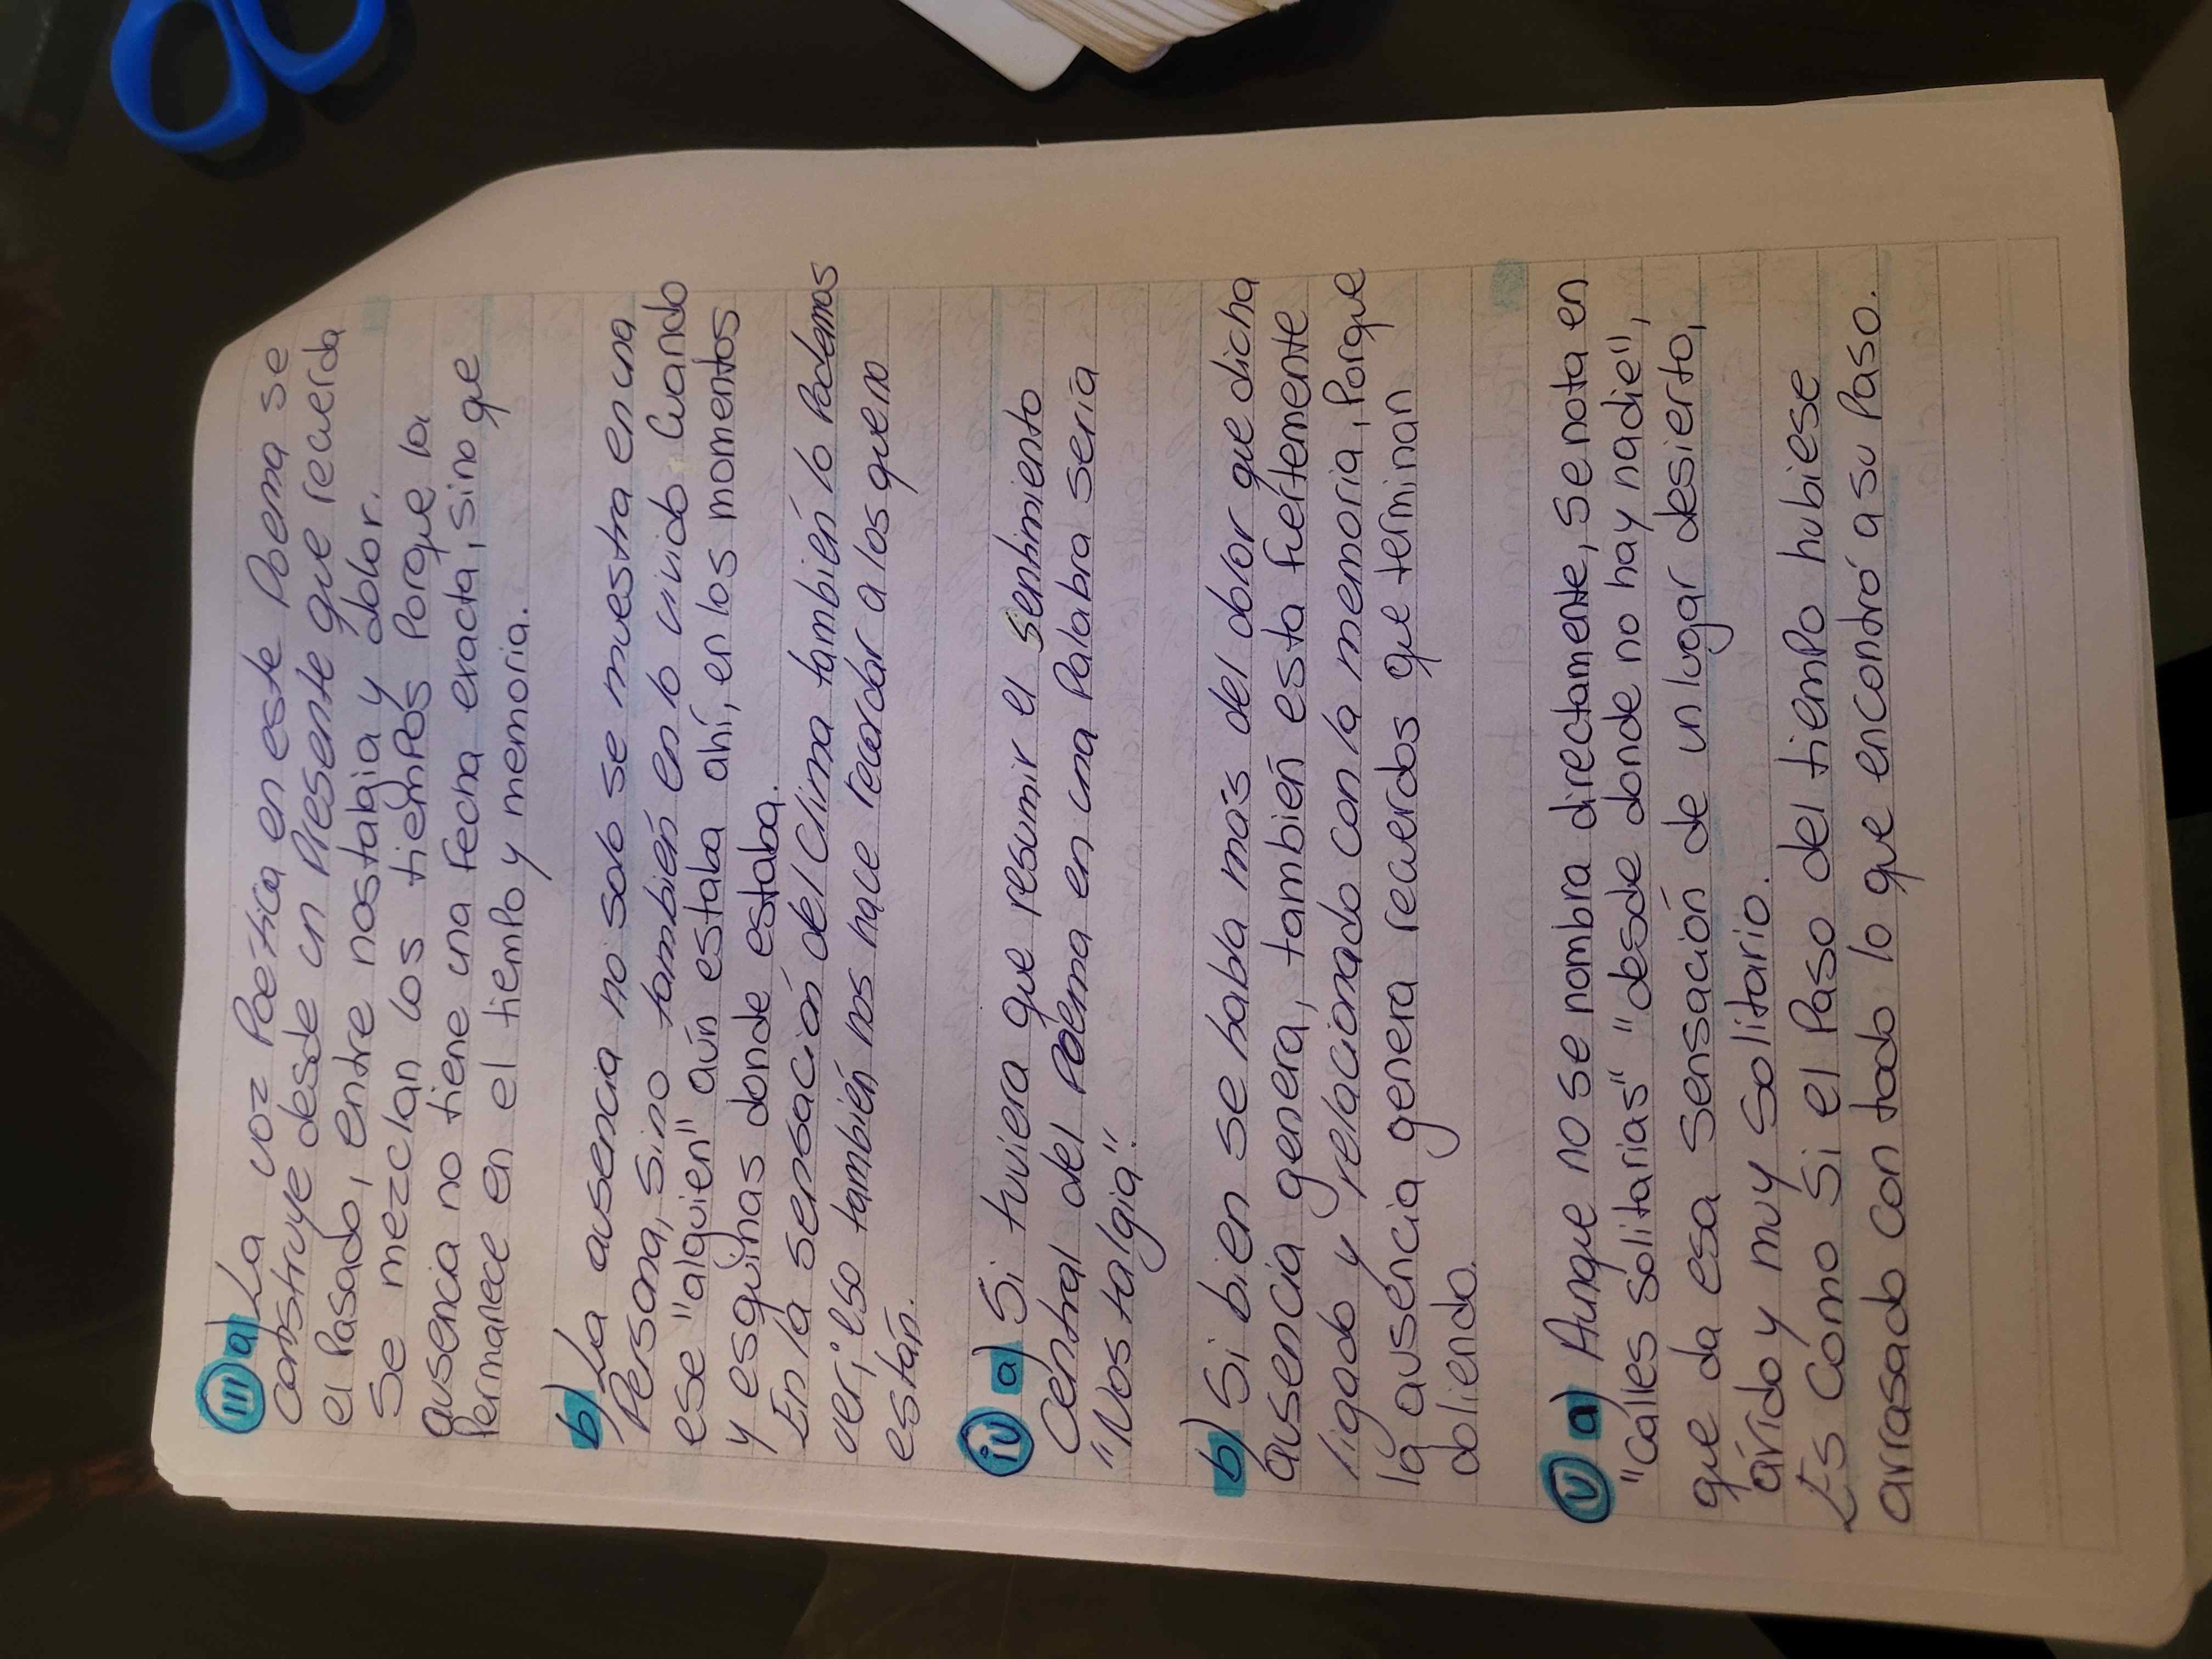 III a) La voz Poética en este Poema se
construye desde un Presente que recuerda
el Pasado, entre nostalgia y dolor.
Se mezclan los tiempos Porque la
ausencia no tiene una fecha exacta, sino que
Permanece en el tiempo y memoria.
b) La ausencia no solo se muestra en una
Persona, sino también en lo vivido cuando
ese "alguien" aún estaba ahí, en los momentos
y esquinas donde estaba.
En la sensación del clima también lo Podemos
ver, eso también nos hace recordar a los que no
están.
iv a) Si tuviera que resumir el sentimiento
Central del Poema en una Palabra sería
"Nostalgia".
b) Si bien se habla más del dolor que dicha
ausencia genera, también esta fuertemente
ligado y relacionado con la memoria, Porque
la ausencia genera recuerdos que terminan
doliendo.
V a) Aunque no se nombra directamente, se nota en
"Calles solitarias" "desde donde no hay nadie",
que da esa sensación de un lugar desierto,
árido y muy solitario.
Es como Si el Paso del tiempo hubiese
arrasado con todo lo que encontró a su Paso.